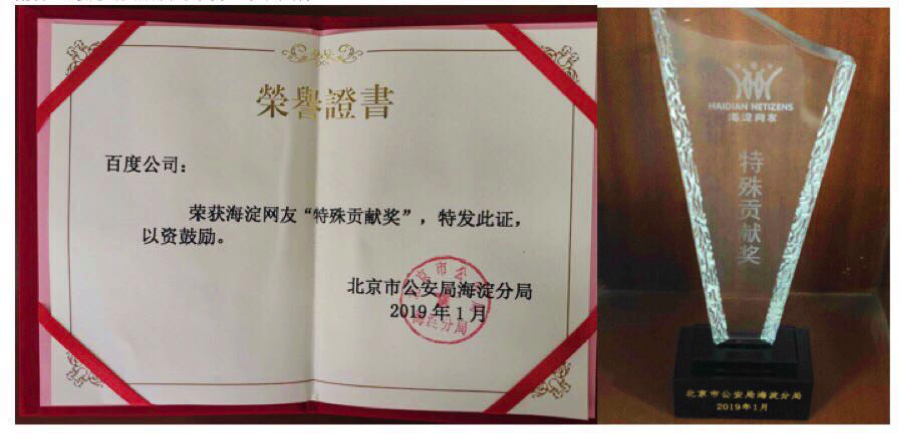 榮譽證書
百度公司：
荣获海淀网友“特殊贡献奖”，特发此证，
以资鼓励。
北京市公安局海淀分局
2019年1月
HAIDIAN NETIZENS
海淀网友
特殊贡献奖
北京市公安局海淀分局
2019年1月